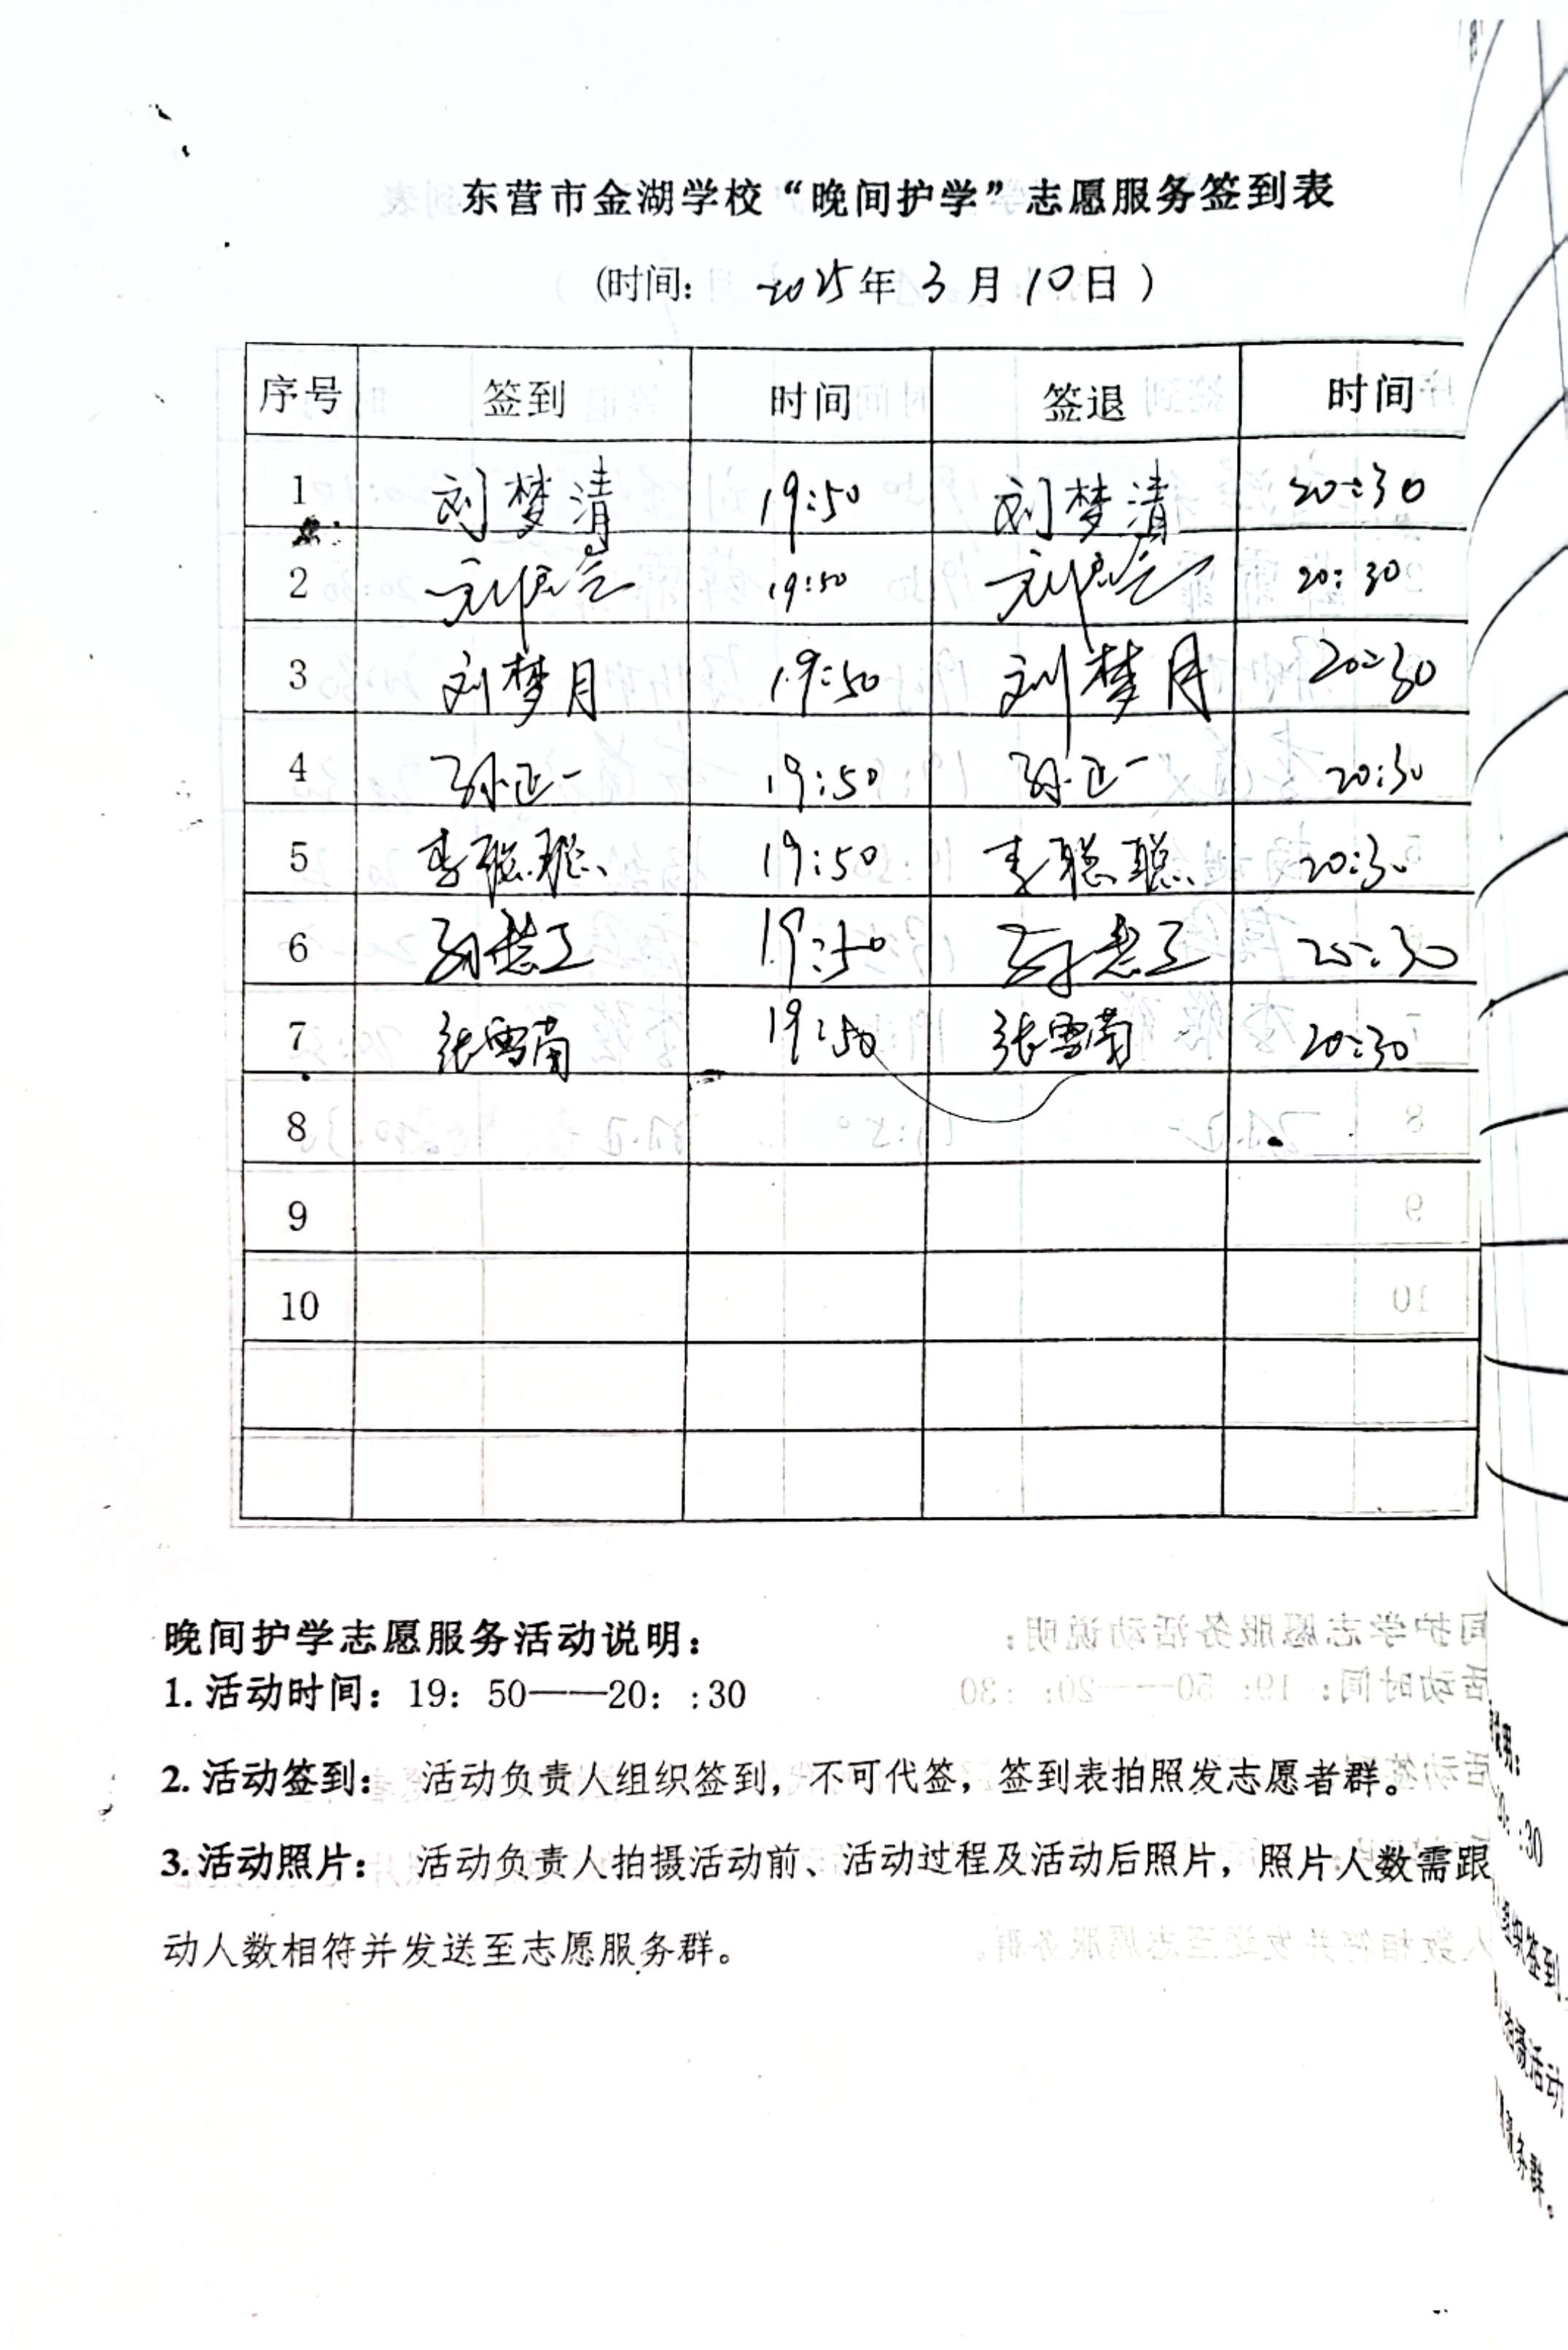 东营市金湖学校“晚间护学”志愿服务签到表
(时间: 2025年3月10日)
序号 签到 时间 签退 时间
1 刘梦清 19:50 刘梦清 20:30
2 19:50 20:30
3 刘梦月 19:50 刘梦月 20:30
4 孙正一 19:50 孙正一 20:30
5 李聪聪 19:50 李聪聪 20:30
6 19:50 20:30
7 张雪南 19:50 张雪南 20:30
8
9
10
晚间护学志愿服务活动说明:
1. 活动时间: 19: 50——20: :30
2. 活动签到: 活动负责人组织签到, 不可代签, 签到表拍照发志愿者群。
3. 活动照片: 活动负责人拍摄活动前、活动过程及活动后照片, 照片人数需跟
动人数相符并发送至志愿服务群。